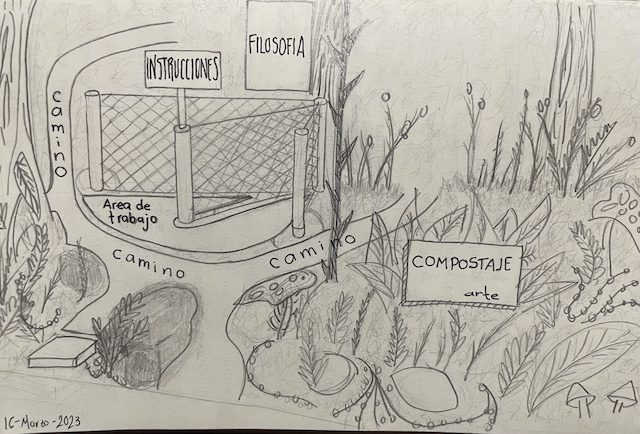 FILOSOFIA
INSTRUCCIONES
camino
Area de
trabajo
camino
camino
COMPOSTAJE
arte
16-Marzo-2023